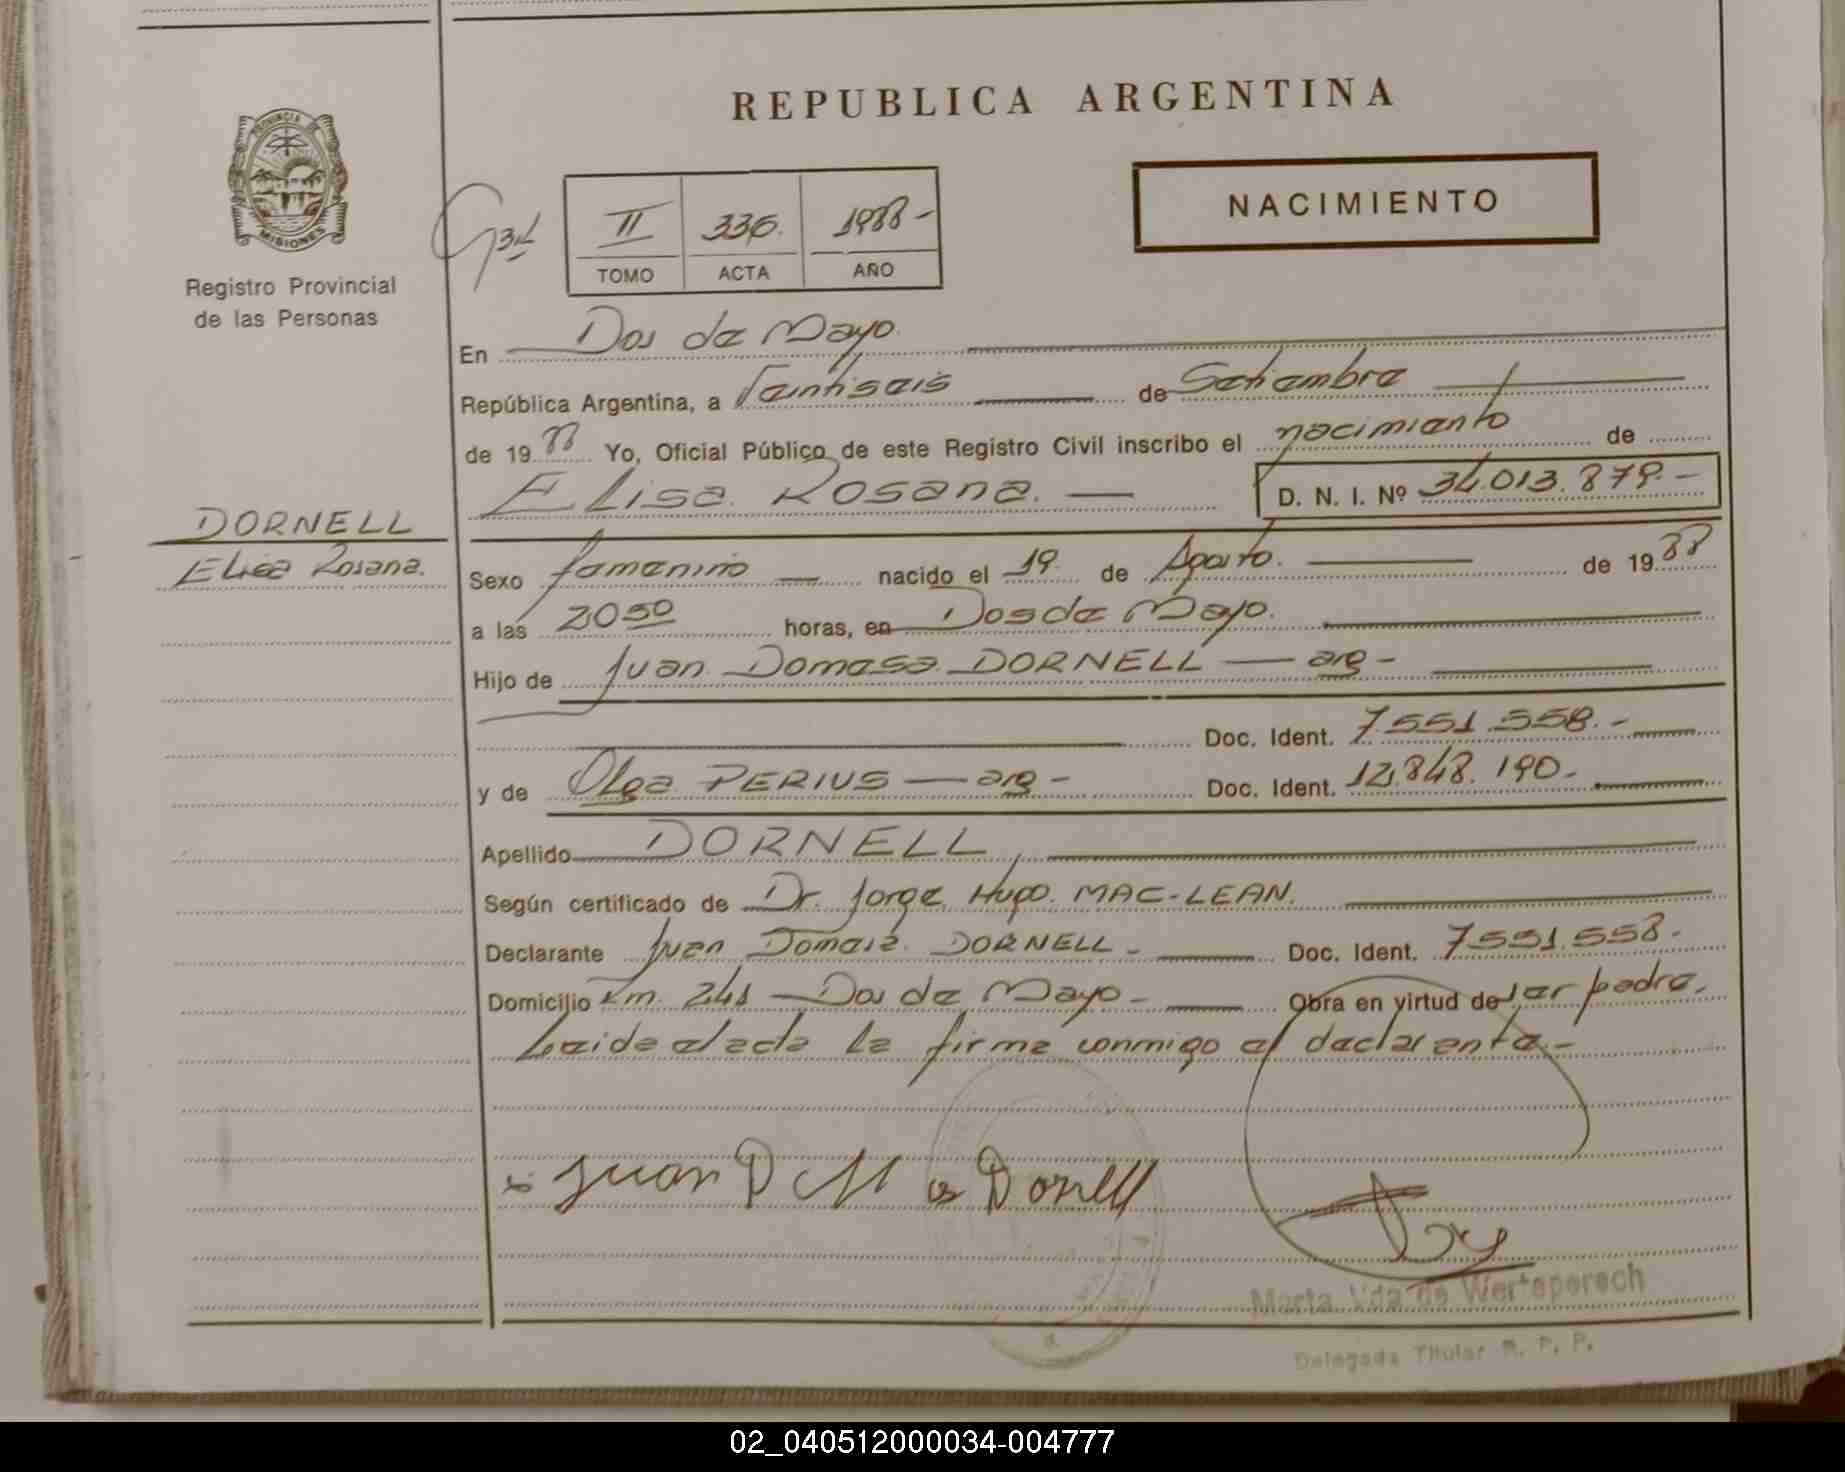 PROVINCIA DE
MISIONES
Registro Provincial
de las Personas
DORNELL
Elisa Rosana.
REPUBLICA ARGENTINA
NACIMIENTO
II 336. 1988-
TOMO ACTA AÑO
En Dos de Mayo.
República Argentina, a Veintiseis de Setiembre
de 1988 Yo, Oficial Público de este Registro Civil inscribo el nacimiento de
Elisa Rosana. — D. N. I. Nº 34.013.879.-
Sexo femenino — nacido el 19. de Agosto. de 1988
a las 20 50 horas, en Dos de Mayo.
Hijo de Juan Domasa DORNELL — arg -
Doc. Ident. 7.551.558.-
y de Olga PERIUS — arg - Doc. Ident. 12.848.190-
Apellido DORNELL
Según certificado de Dr. Jorge Hugo. MAC-LEAN.
Declarante Juan DORNELL - Doc. Ident. 7.551.558.-
Domicilio Km. 241 — Dos de Mayo - Obra en virtud de ser padre.
Leida el acta la firma conmigo el declarante.-
Juan D Donell
Marta Vda de Werteperech
Delegada Titular R. P. P.
02_040512000034-004777